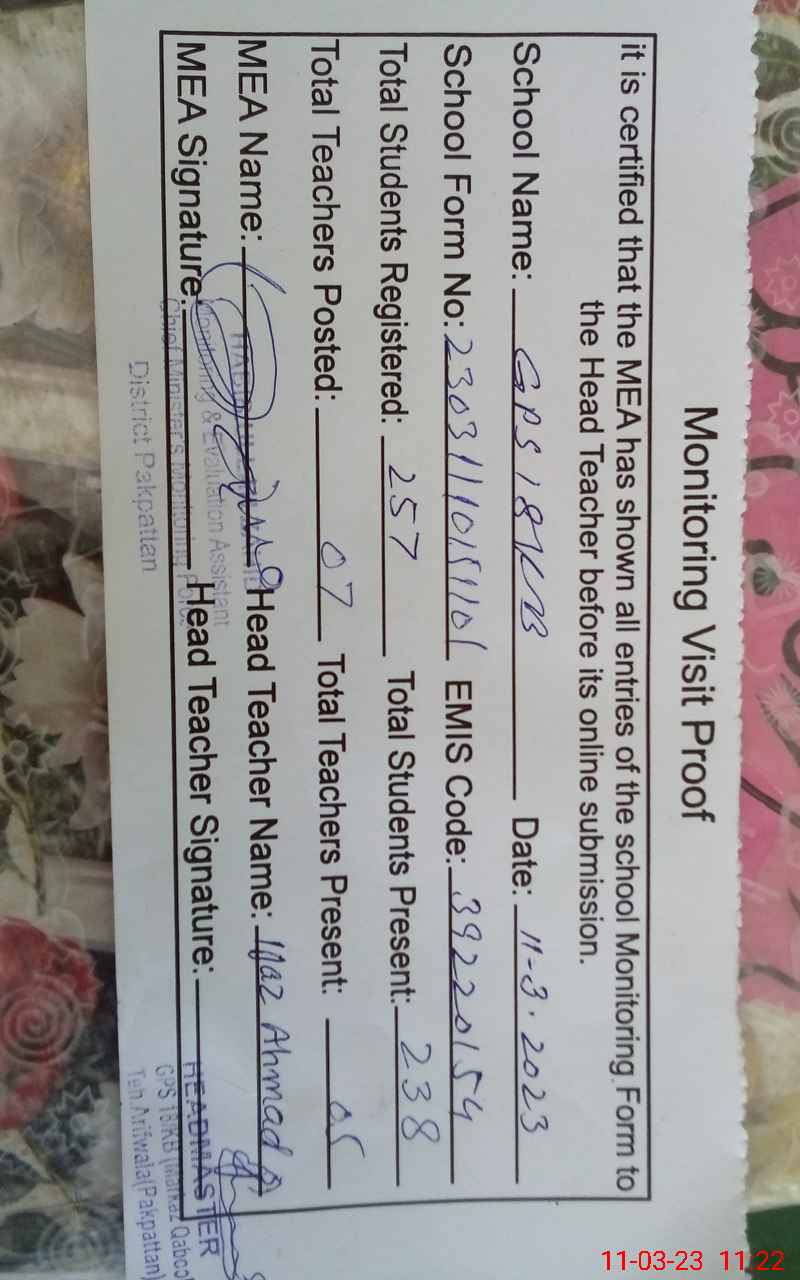 Monitoring Visit Proof
it is certified that the MEA has shown all entries of the school Monitoring Form to
the Head Teacher before its online submission.
School Name: GPS 18/KB Date: 11-3-2023
School Form No: EMIS Code: 39220154
Total Students Registered: 257 Total Students Present: 238
Total Teachers Posted: 07 Total Teachers Present: 05
MEA Name: Head Teacher Name: Ijaz Ahmad
MEA Signature: Head Teacher Signature:
Monitoring & Evaluation Assistant
Chief Minister's Monitoring
District Pakpattan
HEADMASTER
GPS 18/KB (Markaz
Teh.Arifwala(Pakpattan)
11-03-23 11:22